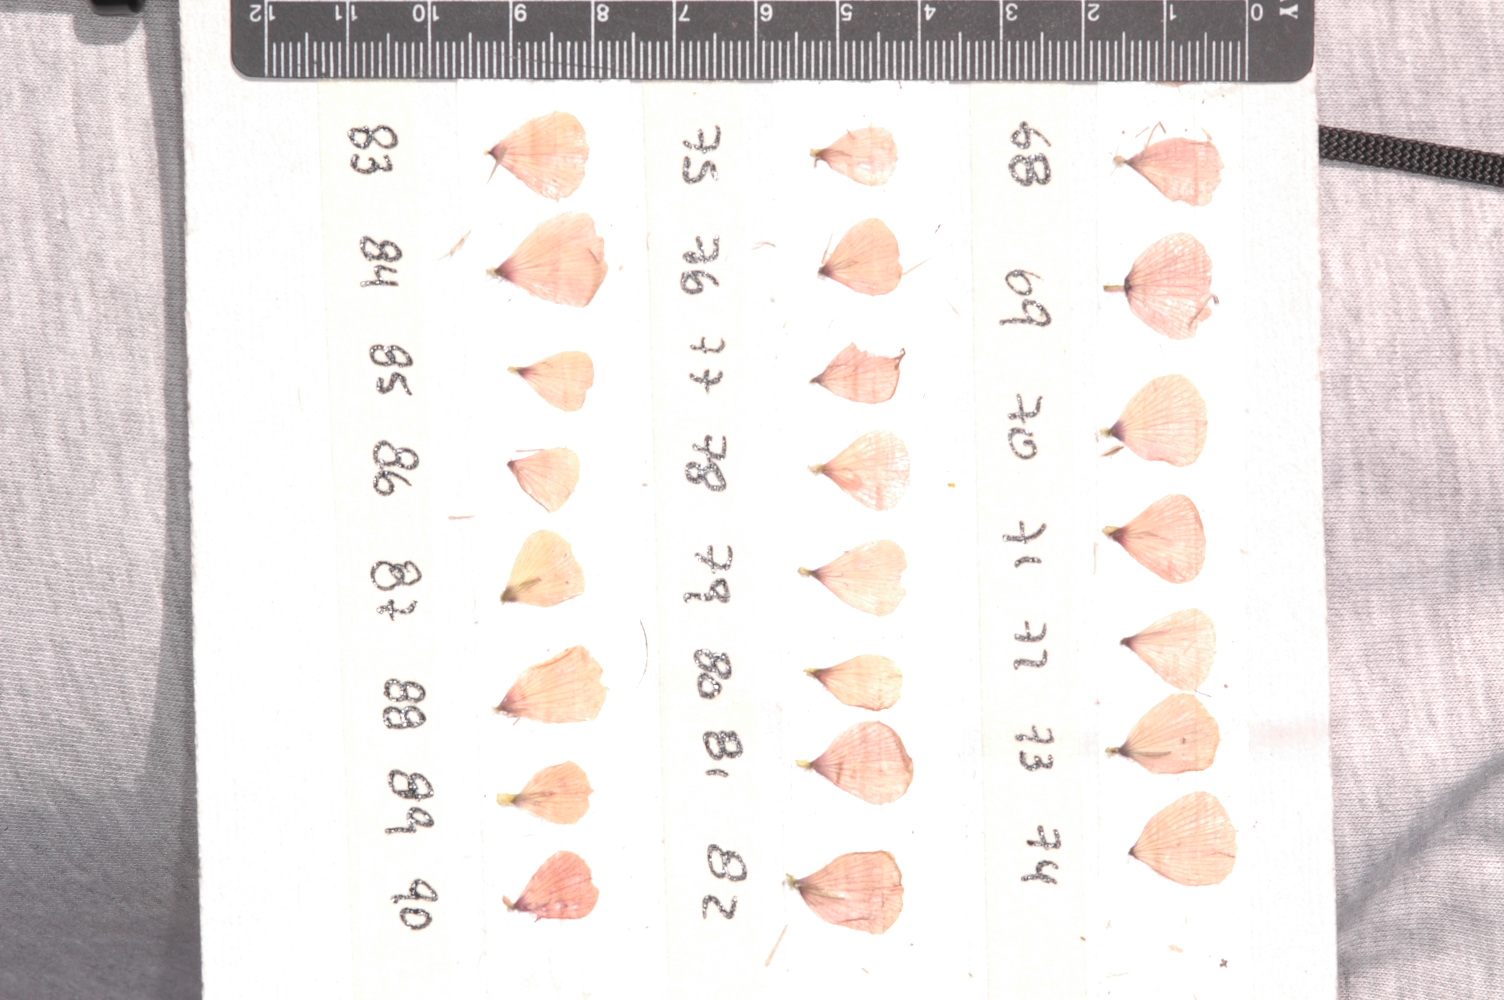 AY
0
1
2
3
4
5
6
7
8
9
10
11
12
68 69 70 71 72 73 74
75 76 77 78 79 80 81 82
83 84 85 86 87 88 89 90